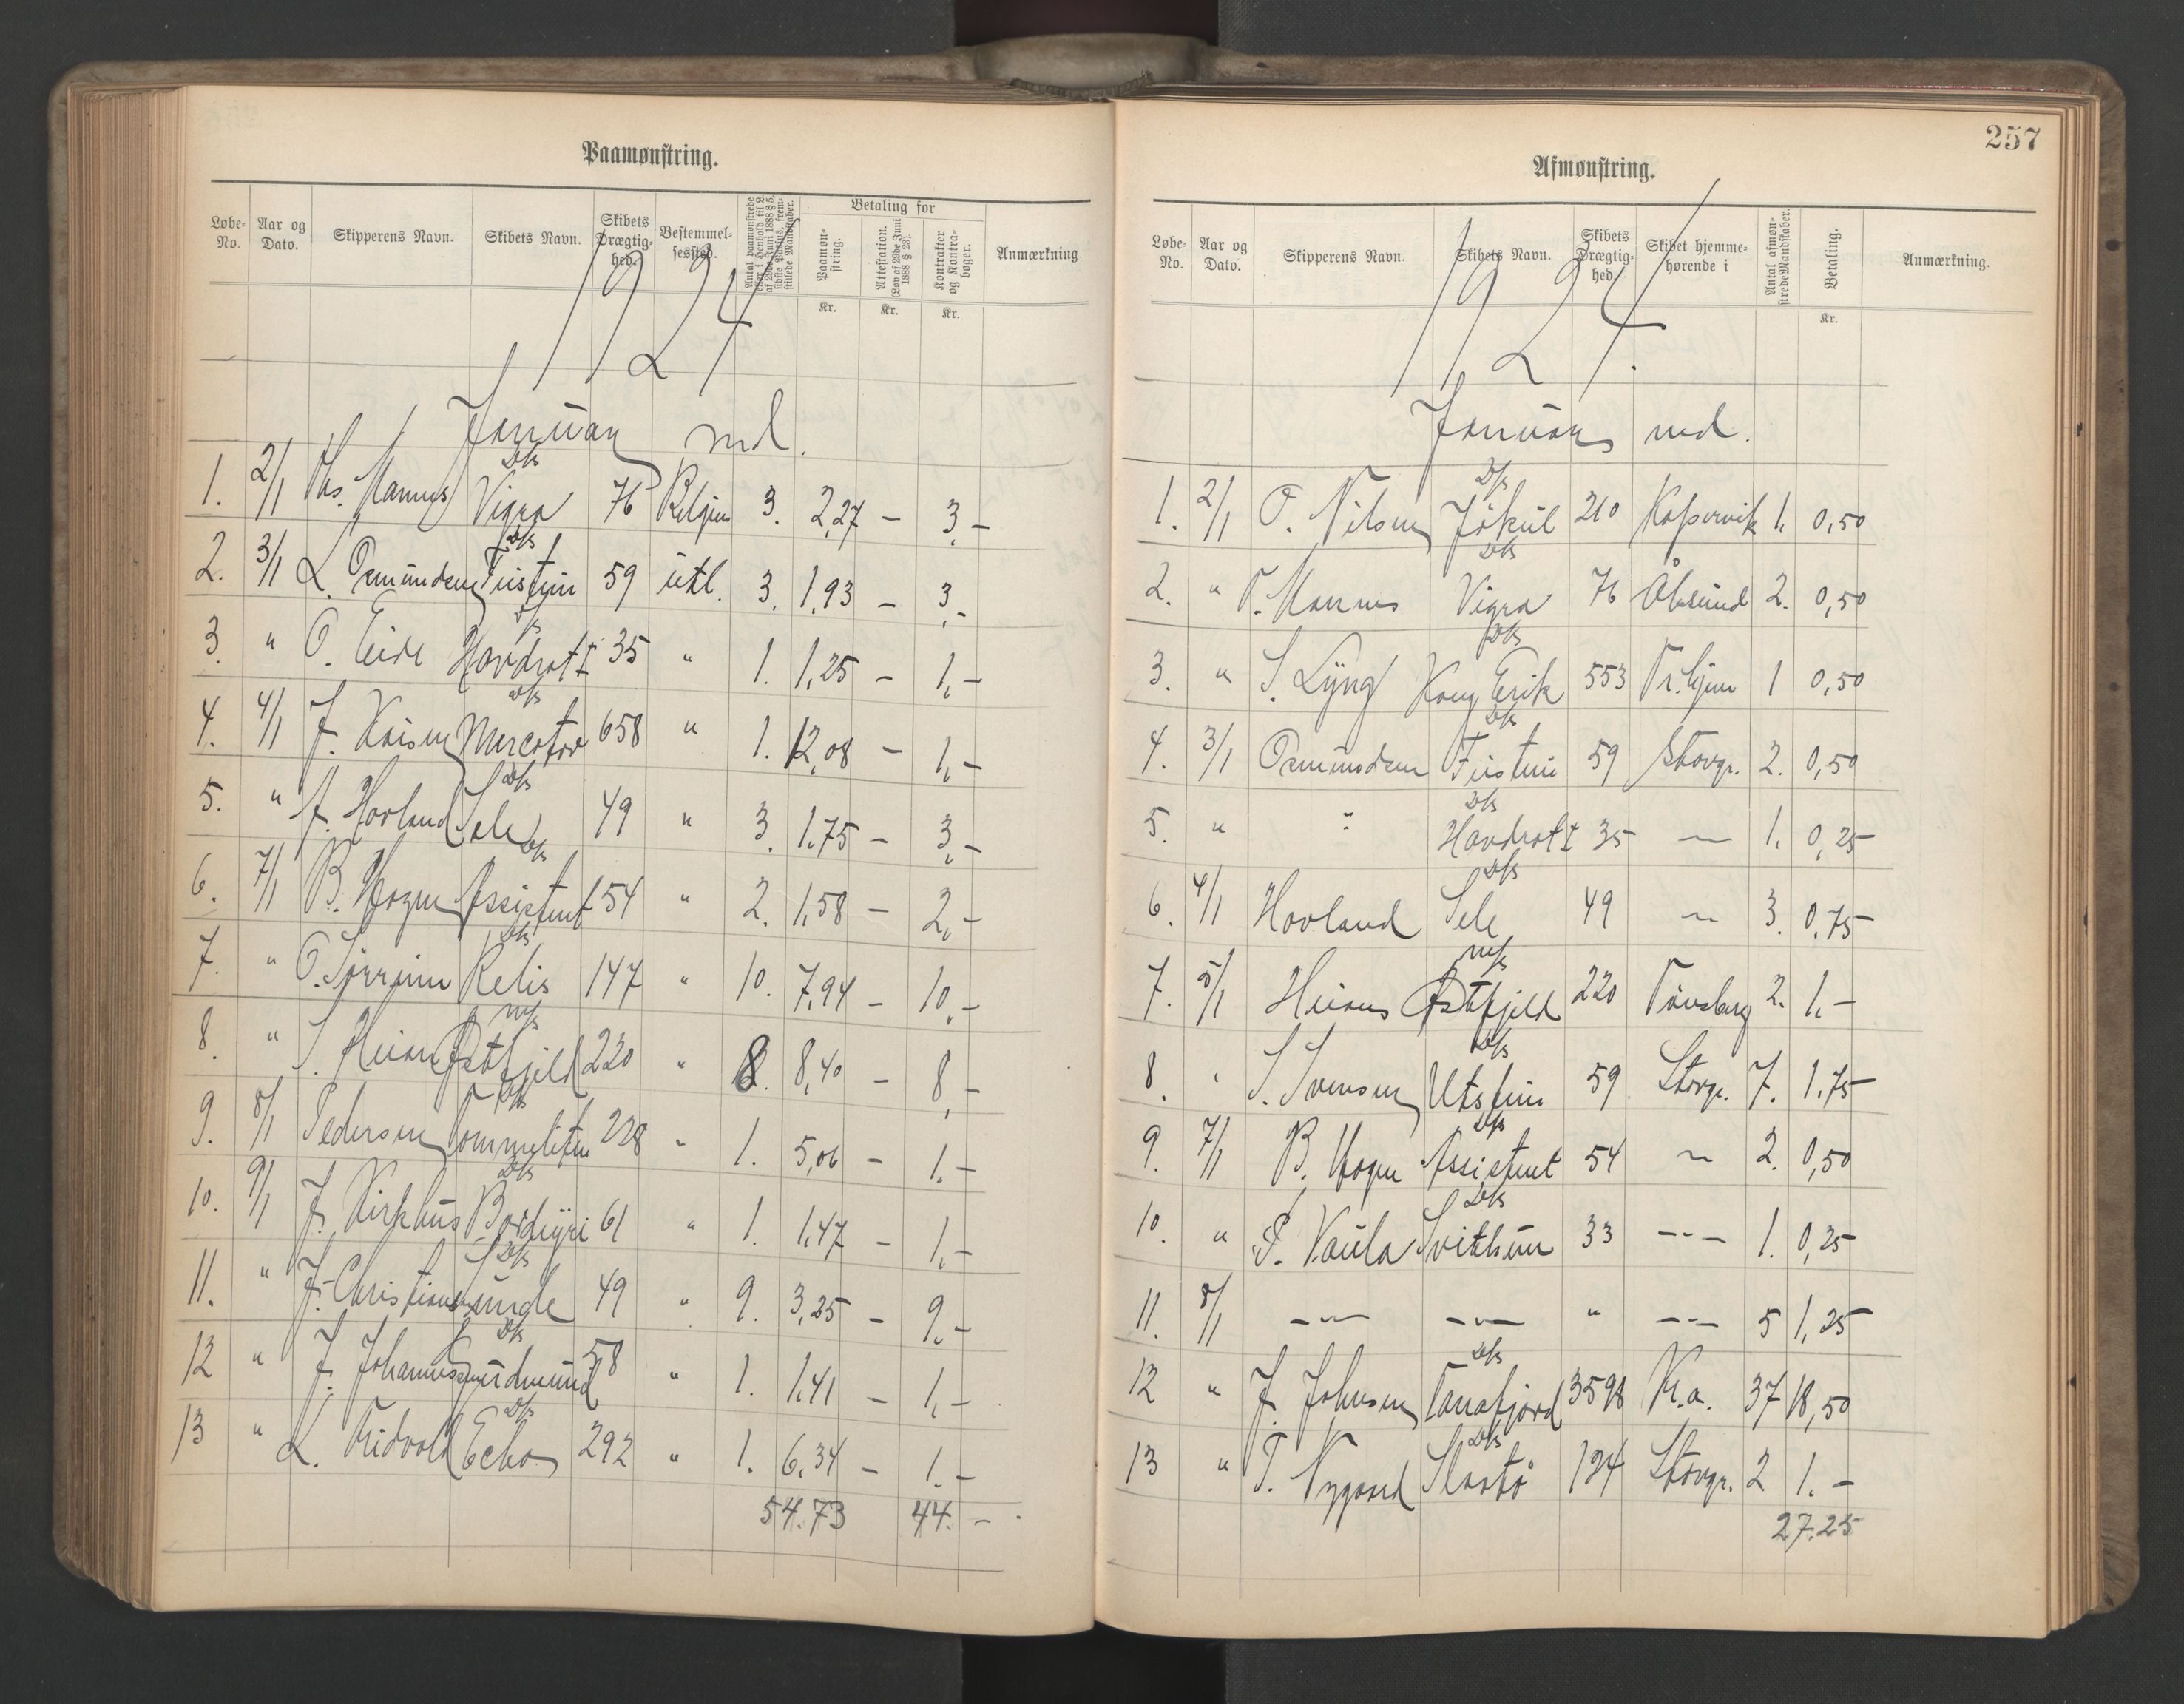 Paamønstring.
Løbe-No. Aar og Dato. Skipperens Navn. Skibets Navn. Skibets Drægtighed. Bestemmelsessted. Betaling for Paamønstring. Attestation. (Lov af 29de Juni 1888 § 23). Kontrakter og Kontrabøger. Anmærkning
Kr. Kr. Kr.
1924
Januar md.
1. 2/1 Hs. Mannes Dk Vigra 76 Belgien 3. 2,27 – 3,–
2. 3/1 L. Osmundsen Dk Tustein 59 utl. 3. 1,93 – 3,–
3. " O. Eide Havdrot I 35 " 1. 1,25 – 1,–
4. 4/1 J. Kaisen Dk Mercator 658 " 1. 12,08 – 1,–
5. " A. Hovland Dk Sele 49 " 3. 1,75 – 3,–
6. 7/1 B. Hagen Dk Assistent 54 " 2. 1,58 – 2,–
7. " O. Dk Relis 147 " 10. 7,94 – 10,–
8. " S. m/s Østfjeld 220 " 8. 8,40 – 8,–
9. 8/1 Pedersen Dk Tommeliten 228 " 1. 5,06 – 1,–
10. 9/1 J. Kirkhus Dk 61 " 1. 1,47 – 1,–
11. " J. Christiansen Dk 49 " 9. 3,25 – 9,–
12 " J. Johannes Dk Gudmund 58 " 1. 1,41 – 1,–
13 " L. Tridvold Dk Echo 292 " 1. 6,34 – 1,–
54.73 44.–
257
Afmønstring.
Løbe-No. Aar og Dato. Skipperens Navn. Skibets Navn. Skibets Drægtighed. Skibet hjemmehørende i Antal afmønstrede Mandskaber. Betaling. Anmærkning.
Kr.
1924.
Januar md.
1. 2/1 O. Nilsen Dk Jökul 210 Kopervik 1. 0,50
2. " T. Mannes Dk Vigra 76 Ålesund 2. 0,50
3. " S. Lyng Dk Kong Erik 553 Tr.hjem 1 0,50
4. 3/1 Osmundsen Dk Tustein 59 Stavgr. 2. 0,50
5. " " Dk Havdrot I 35 — 1. 0,25
6. 4/1 Hovland Dk Sele 49 — 3. 0,75
7. 5/1 m/s Østfjeld 220 Tønsberg 2. 1.–
8. " S. Svensen Dk Utstein 59 Stavgr. 7. 1,75
9. 7/1 B. Hagen Dk Assistent 54 — 2. 0,50
10. " S. Vaula Dk Svithun 33 --- 1. 0,25
11. 8/1 --- --- " --- 5 1,25
12 " J. Johnsen Dk Tanafjord 3598 Kr.a. 37 18,50
13 " T. Nygaard Dk 124 Stavgr. 2 1.–
27.25